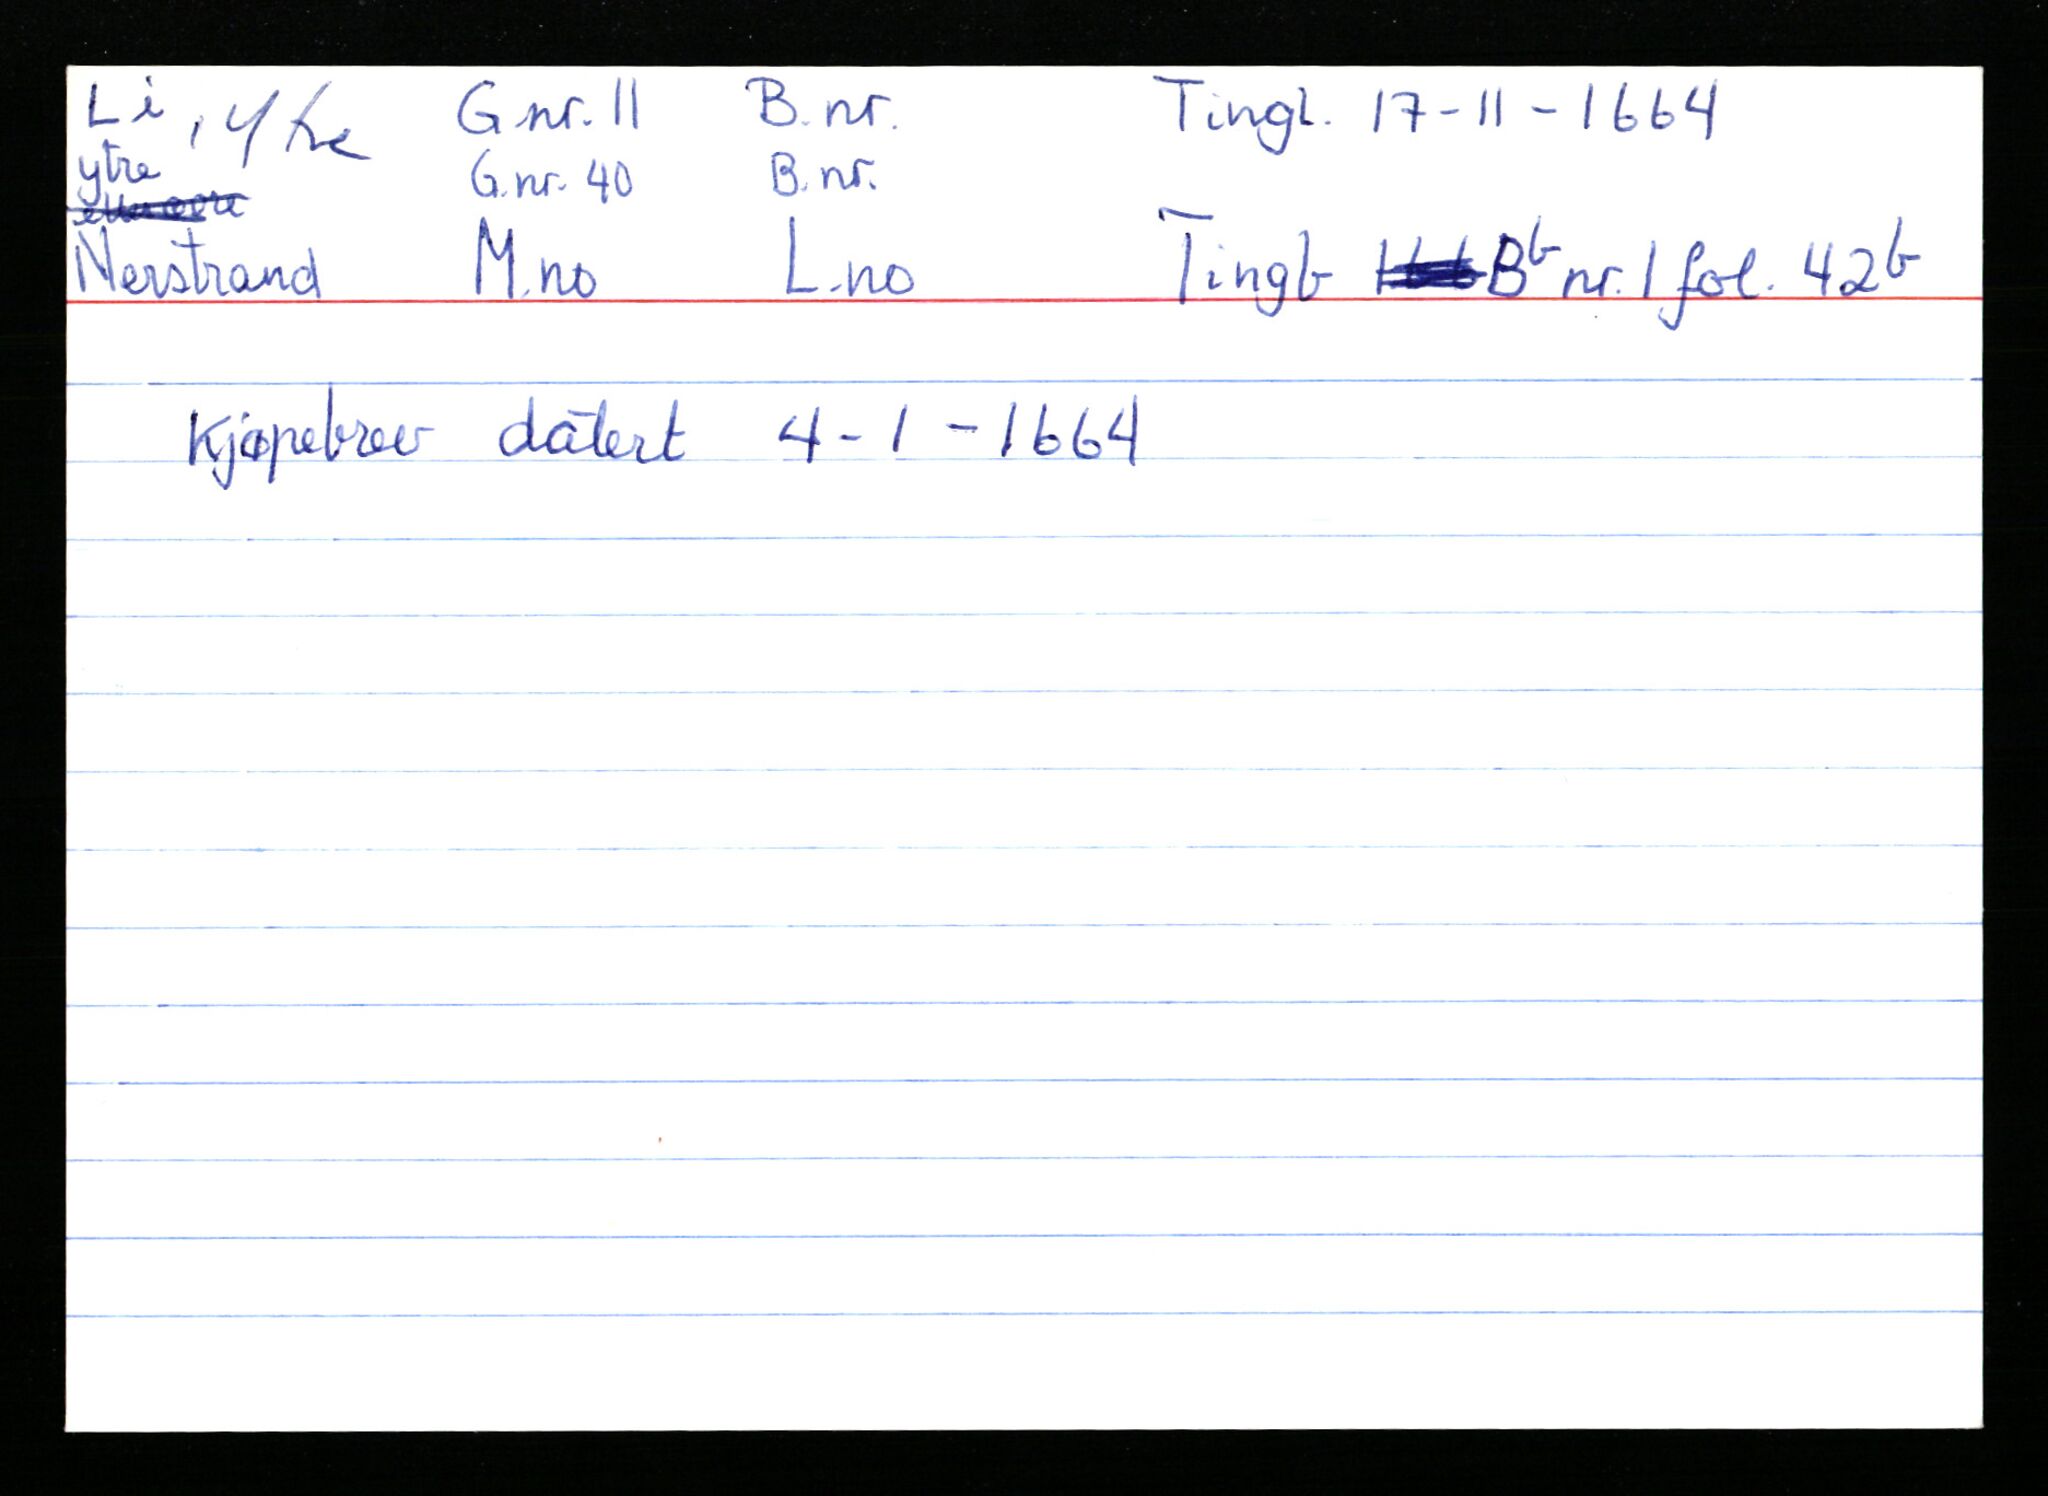 Li, Ytre G.nr. 11 B.nr. Tingl. 17-11-1664
ytre G.nr. 40 B.nr.
Nerstrand M.no L.no Tingb Bb nr. 1 fol. 42b
Kjøpebrev datert 4-1-1664